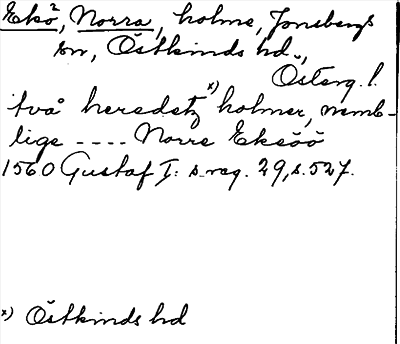 Ekö², Norra, holme, Jonsbergs
sn, Östkinds hd.,
Österg. l.
två heredetz x) holmer, nemb-
lige ---- Norre Eksöö
1560 Gustaf I: s reg. 29, s. 527.
x) Östkinds hd